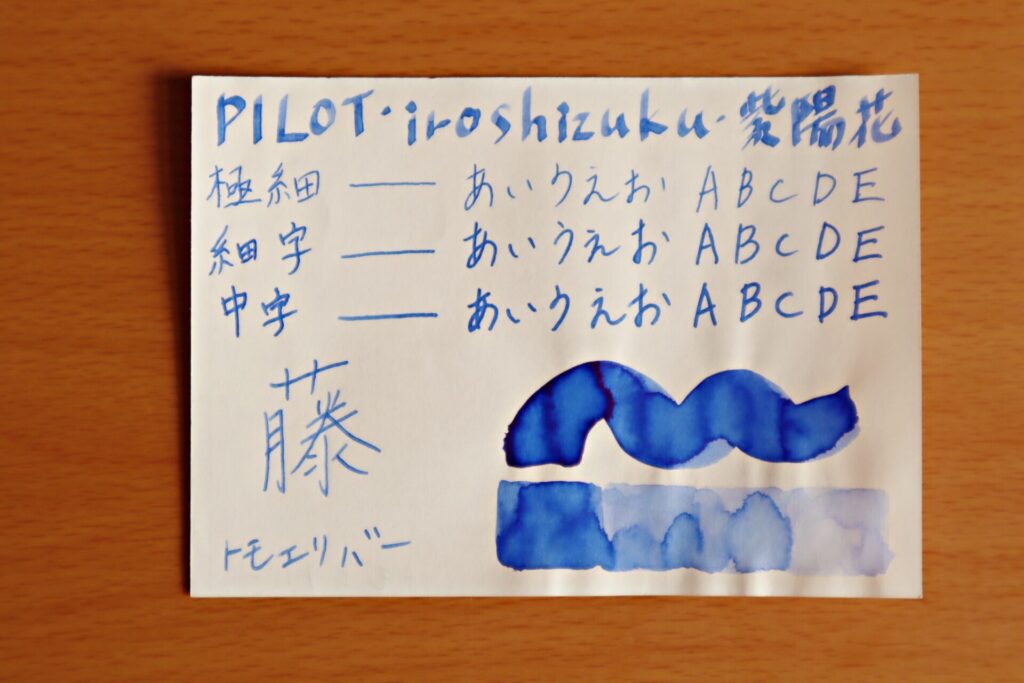 PILOT・iroshizuku・紫陽花
極細 ― あいうえお ABCDE
細字 ― あいうえお ABCDE
中字 ― あいうえお ABCDE
藤
トモエリバー